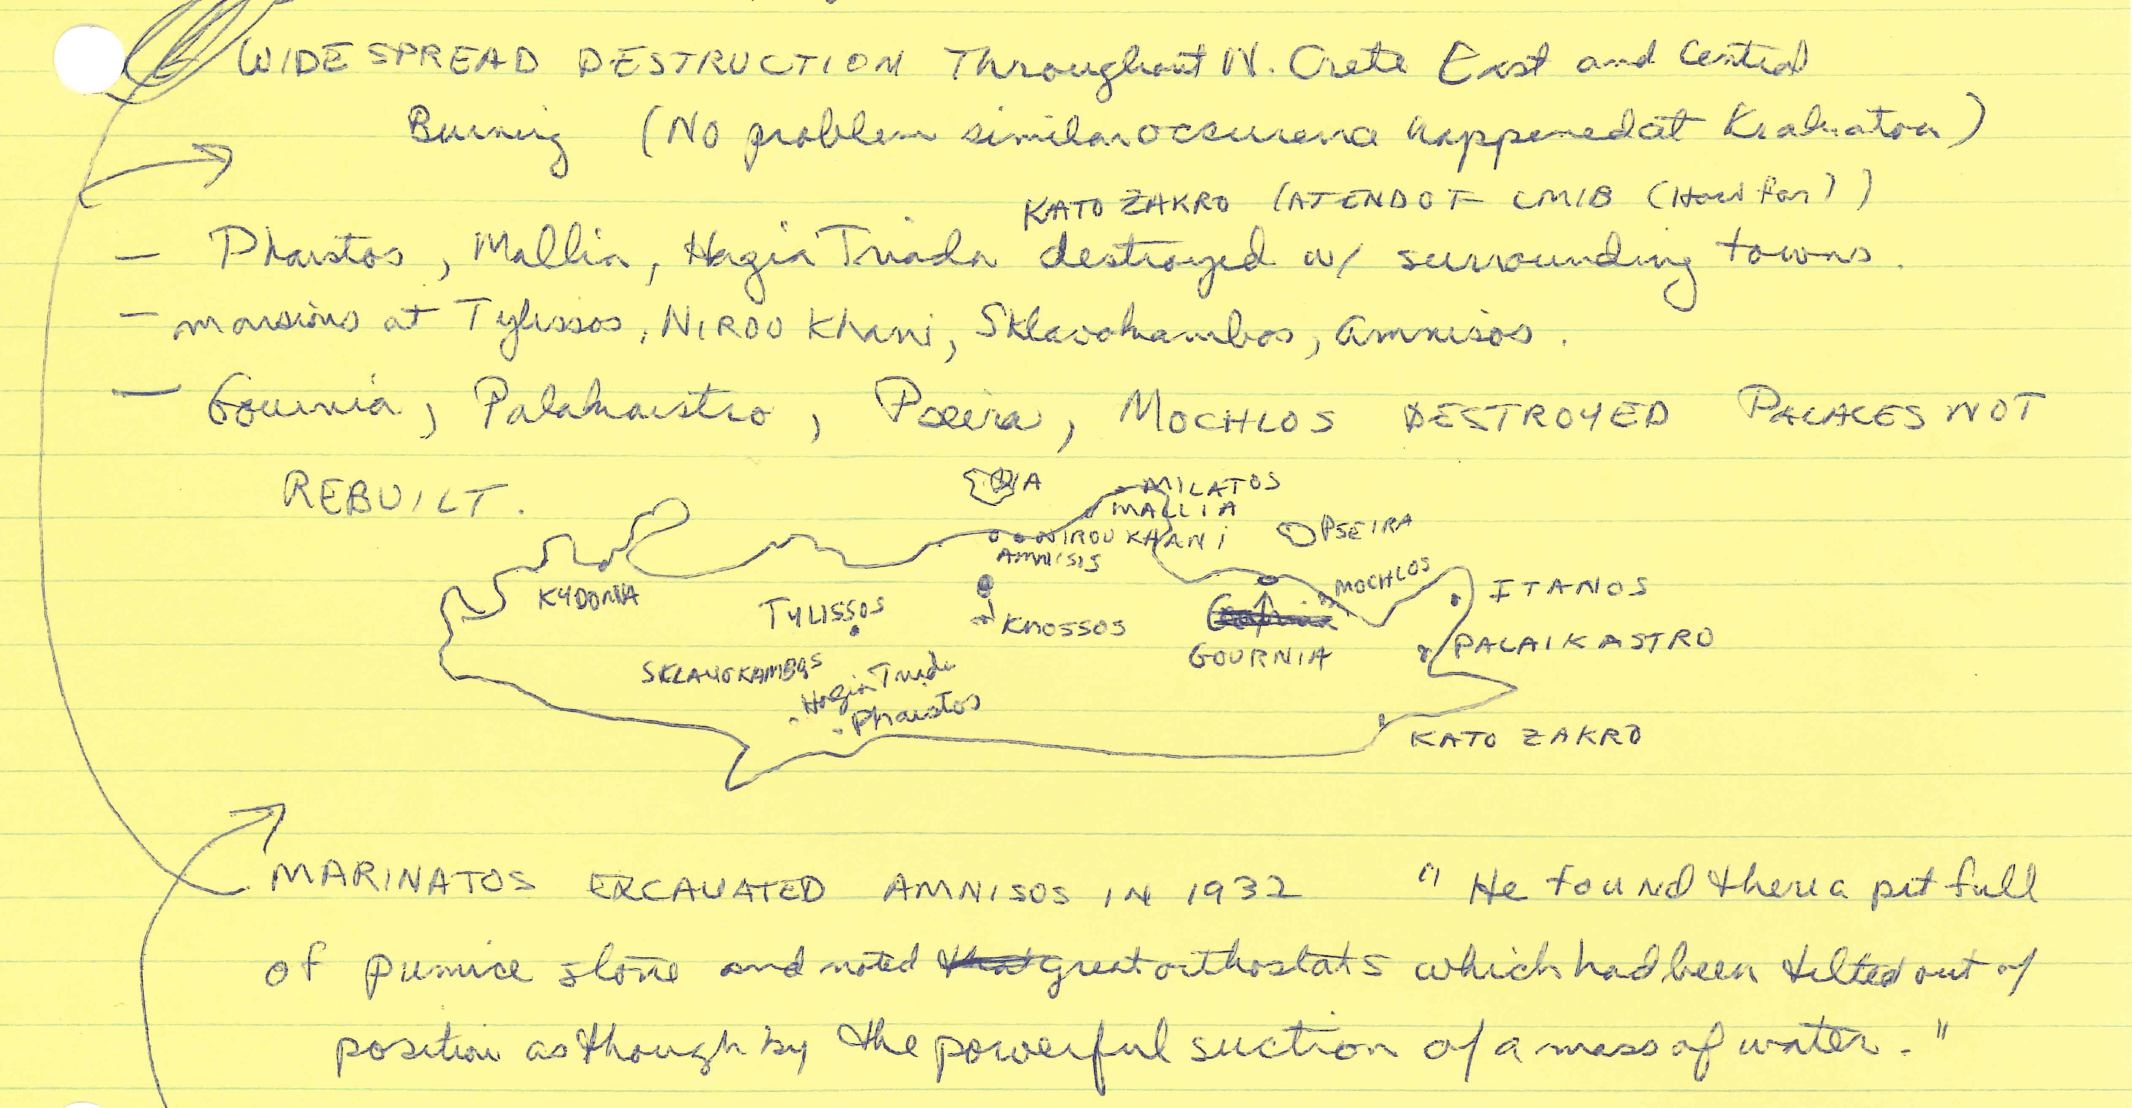 WIDESPREAD DESTRUCTION Throughout N. Crete East and Central
Burning (No problem similar occurence happened at Krakatoa)
KATO ZAKRO (AT END OF LMIB (How far?))
— Phaistos, Mallia, Hagia Triada destroyed w/ surrounding towns.
— mansions at Tylissos, NIROU Khani, Sklavokambos, Amnisos.
— Gournia, Palaikaistro, Pseira, MOCHLOS DESTROYED PALACES NOT
REBUILT.
DIA
MILATOS
MALLIA
NIROU KHANI
AMNISIS
PSEIRA
KYDONIA
TYLISSOS
KNOSSOS
MOCHLOS
ITANOS
GOURNIA
PALAIKASTRO
SKLAVOKAMBOS
Hagia Triada
Phaistos
KATO ZAKRO
MARINATOS EXCAVATED AMNISOS IN 1932 "He found there a pit full
of pumice stone and noted that great orthostats which had been tilted out of
position as though by the powerful suction of a mass of water."